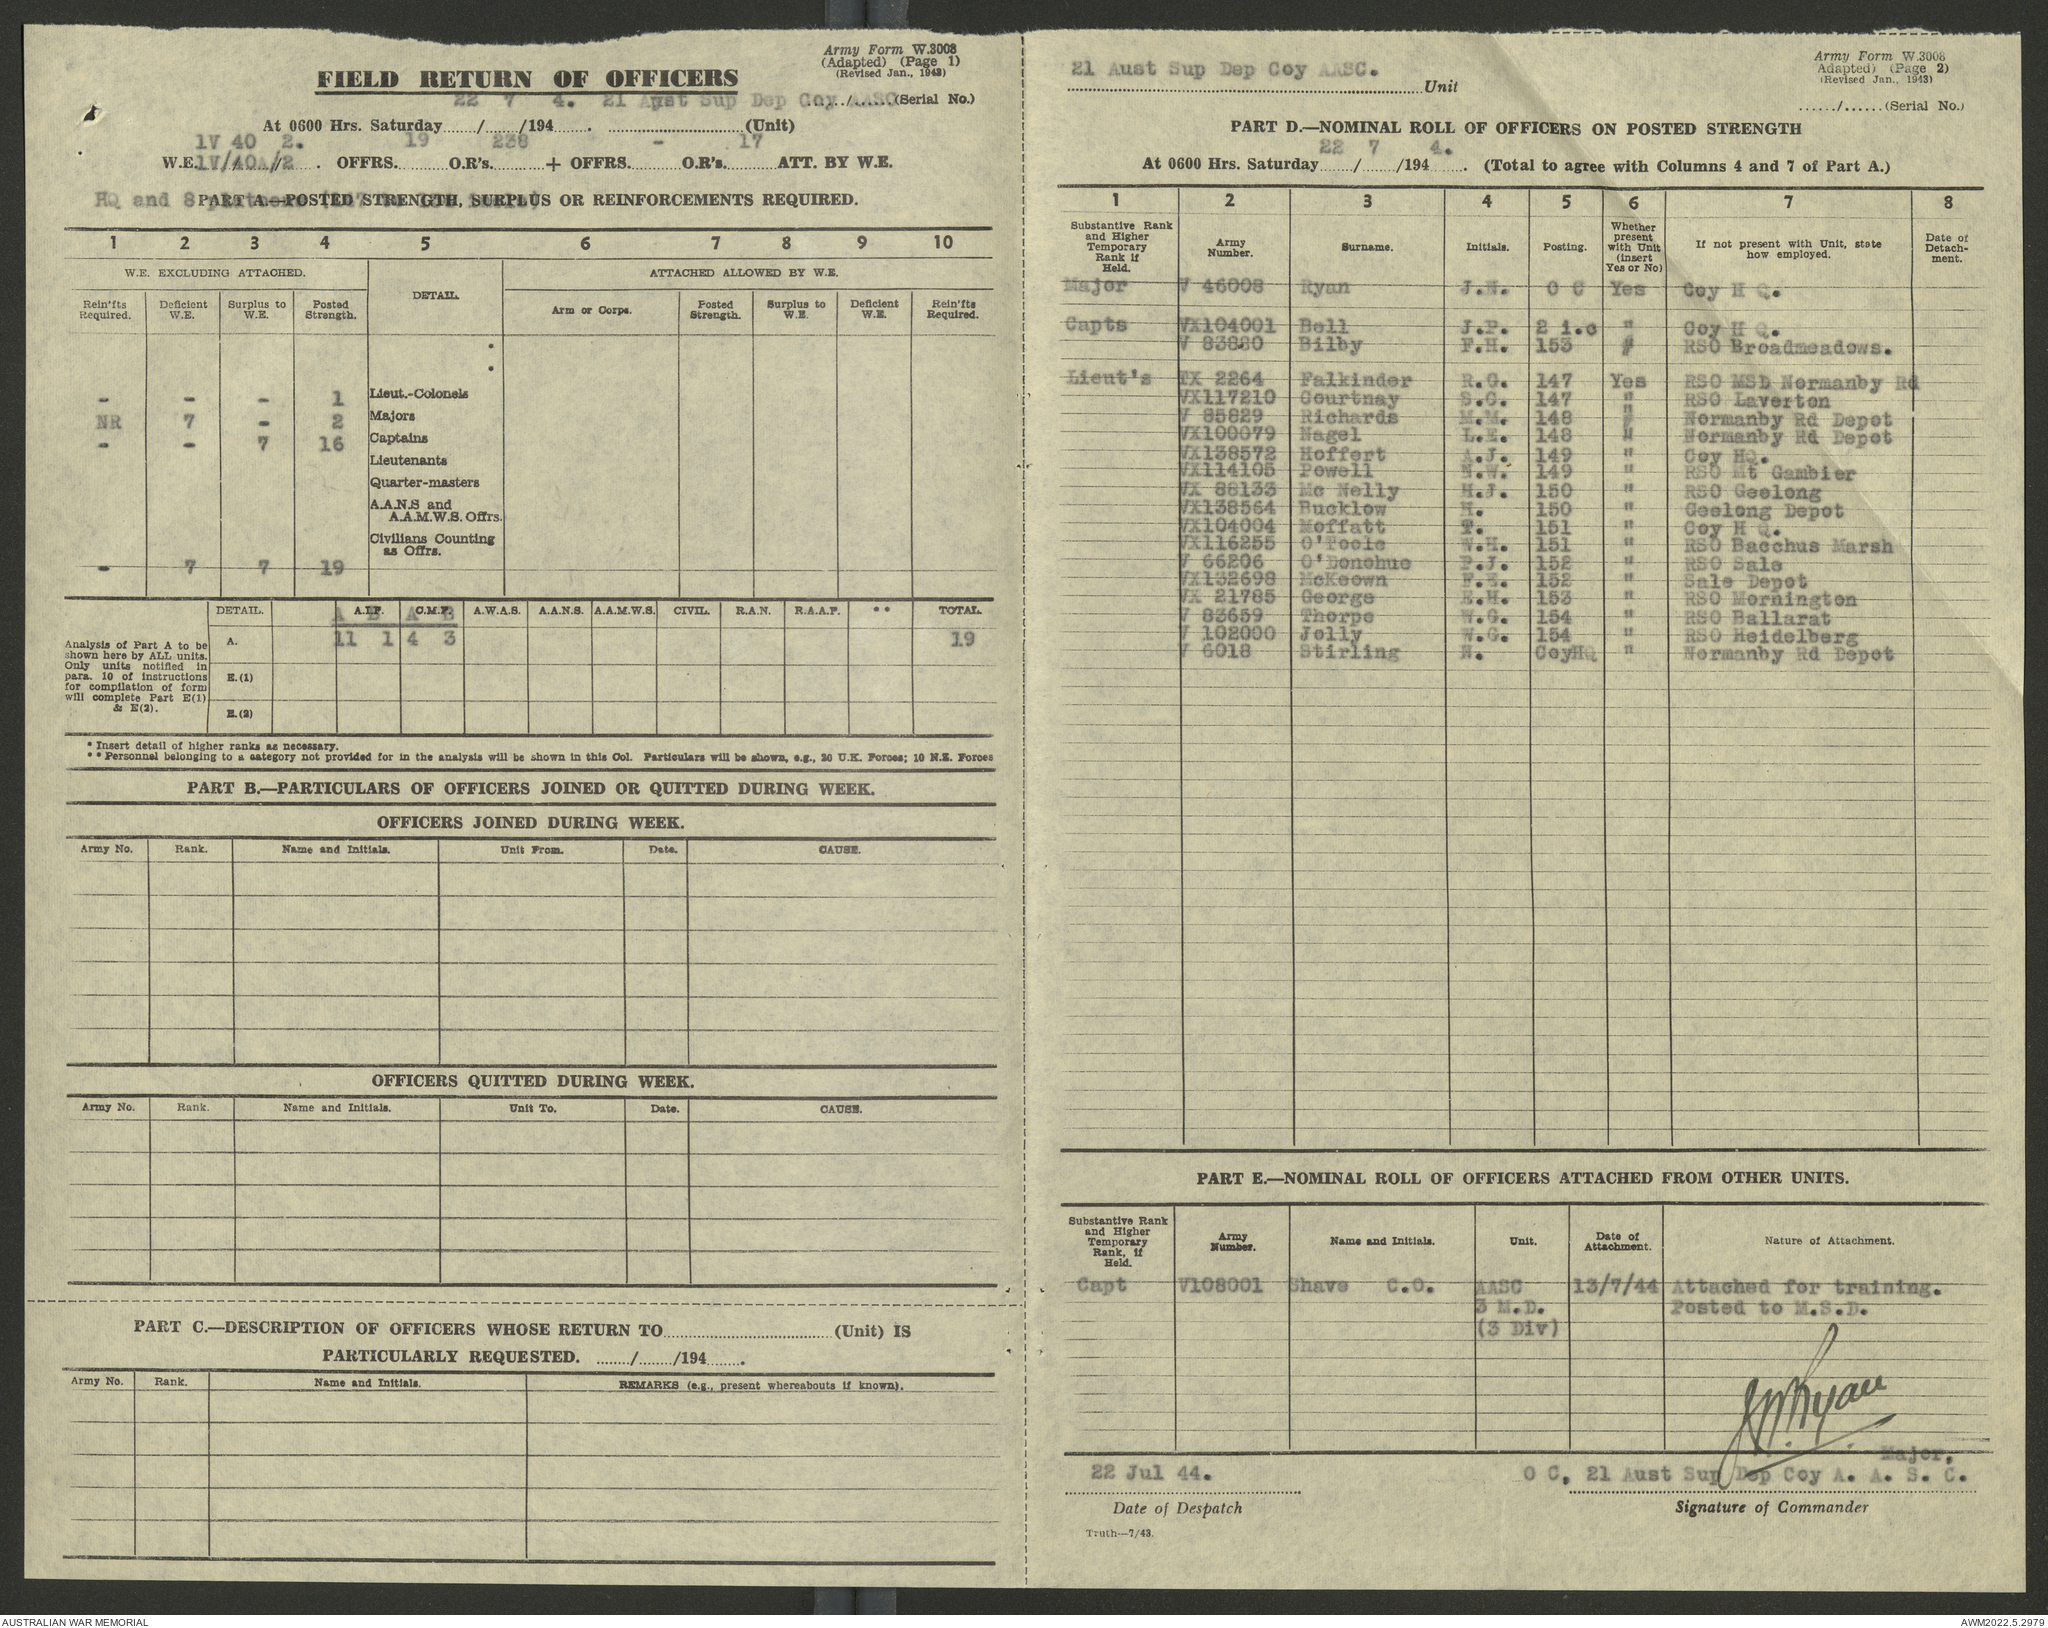 Army Form W.3008
(Adapted) (Page 1)
(Revised Jan., 1943)
FIELD RETURN OF OFFICERS
22 7 4. 21 Aust Sup Dep Coy AASC
....../......(Serial No.)
At 0600 Hrs. Saturday......./......./194....... . ...............................(Unit)
1V 40 2. 19 238 - 17
W.E. 1V/40A/2 . OFFRS. .......... O.R's. .......... + OFFRS. .......... O.R's. .......... ATT. BY W.E.
HQ and 8
PART A.—POSTED STRENGTH, SURPLUS OR REINFORCEMENTS REQUIRED.
1 2 3 4 5 6 7 8 9 10
W.E. EXCLUDING ATTACHED. DETAIL. ATTACHED ALLOWED BY W.E.
Rein'fts Required. Deficient W.E. Surplus to W.E. Posted Strength. Arm or Corps. Posted Strength. Surplus to W.E. Deficient W.E. Rein'fts Required.
*
*
Lieut.-Colonels
- - - 1
Majors
NR 7 - 2
Captains
- - 7 16
Lieutenants
Quarter-masters
A.A.N.S and
A.A.M.W.S. Offrs.
Civilians Counting
as Offrs.
- 7 7 19
DETAIL. A.I.F. C.M.F. A.W.A.S. A.A.N.S. A.A.M.W.S. CIVIL. R.A.N. R.A.A.F. ** TOTAL.
A B A B
Analysis of Part A to be
shown here by ALL units.
Only units notified in
para. 10 of instructions
for compilation of form
will complete Part E(1)
& E(2).
A. 11 1 4 3 19
E.(1)
E.(2)
* Insert detail of higher ranks as necessary.
** Personnel belonging to a category not provided for in the analysis will be shown in this Col. Particulars will be shown, e.g., 20 U.K. Forces; 10 N.E. Forces
PART B.—PARTICULARS OF OFFICERS JOINED OR QUITTED DURING WEEK.
OFFICERS JOINED DURING WEEK.
Army No. Rank. Name and Initials. Unit From. Date. CAUSE.
OFFICERS QUITTED DURING WEEK.
Army No. Rank. Name and Initials. Unit To. Date. CAUSE.
PART C.—DESCRIPTION OF OFFICERS WHOSE RETURN TO...............................(Unit) IS
PARTICULARLY REQUESTED. ......../......../194........
Army No. Rank. Name and Initials. REMARKS (e.g., present whereabouts if known).
Army Form W.3008
Adapted) (Page 2)
(Revised Jan., 1943)
21 Aust Sup Dep Coy AASC.
Unit
....../......(Serial No.)
PART D.—NOMINAL ROLL OF OFFICERS ON POSTED STRENGTH
22 7 4.
At 0600 Hrs. Saturday......./......./194....... . (Total to agree with Columns 4 and 7 of Part A.)
1 2 3 4 5 6 7 8
Substantive Rank and Higher Temporary Rank if Held. Army Number. Surname. Initials. Posting. Whether present with Unit (insert Yes or No) If not present with Unit, state how employed. Date of Detach-ment.
Major V 46008 Ryan J.N. O C Yes Coy H Q.
Capts VX104001 Bell J.P. 2 i.c " Coy H Q.
V 83880 Bilby F.H. 153 " RSO Broadmeadows.
Lieut's TX 2264 Falkinder R.G. 147 Yes RSO MSD Normanby Rd
VX117210 Courtnay S.C. 147 " RSO Laverton
V 85829 Richards M.M. 148 " Normanby Rd Depot
VX100079 Nagel L.E. 148 " Normanby Rd Depot
VX138572 Hoffert A.J. 149 " Coy HQ.
VX114105 Powell N.W. 149 " RSO Mt Gambier
VX 88133 Mc Nelly H.J. 150 " RSO Geelong
VX138564 Bucklow H. 150 " Geelong Depot
VX104004 Moffatt T. 151 " Coy H Q.
VX116255 O'Toole W.H. 151 " RSO Bacchus Marsh
V 66206 O'Donohue P.J. 152 " RSO Sale
VX132698 McKeown F.E. 152 " Sale Depot
VX 21785 George E.H. 153 " RSO Mornington
V 83659 Thorpe W.G. 154 " RSO Ballarat
V 102000 Jolly W.G. 154 " RSO Heidelberg
V 6018 Stirling N. CoyHQ " Normanby Rd Depot
PART E.—NOMINAL ROLL OF OFFICERS ATTACHED FROM OTHER UNITS.
Substantive Rank and Higher Temporary Rank, if Held. Army Number. Name and Initials. Unit. Date of Attachment. Nature of Attachment.
Capt V108001 Shave C.O. AASC 13/7/44 Attached for training.
3 M.D. Posted to M.S.D.
(3 Div)
JN Ryan
Major,
22 Jul 44. O C, 21 Aust Sup Dep Coy A. A. S. C.
Date of Despatch Signature of Commander
Truth—7/43.
AUSTRALIAN WAR MEMORIAL AWM2022.5.2979